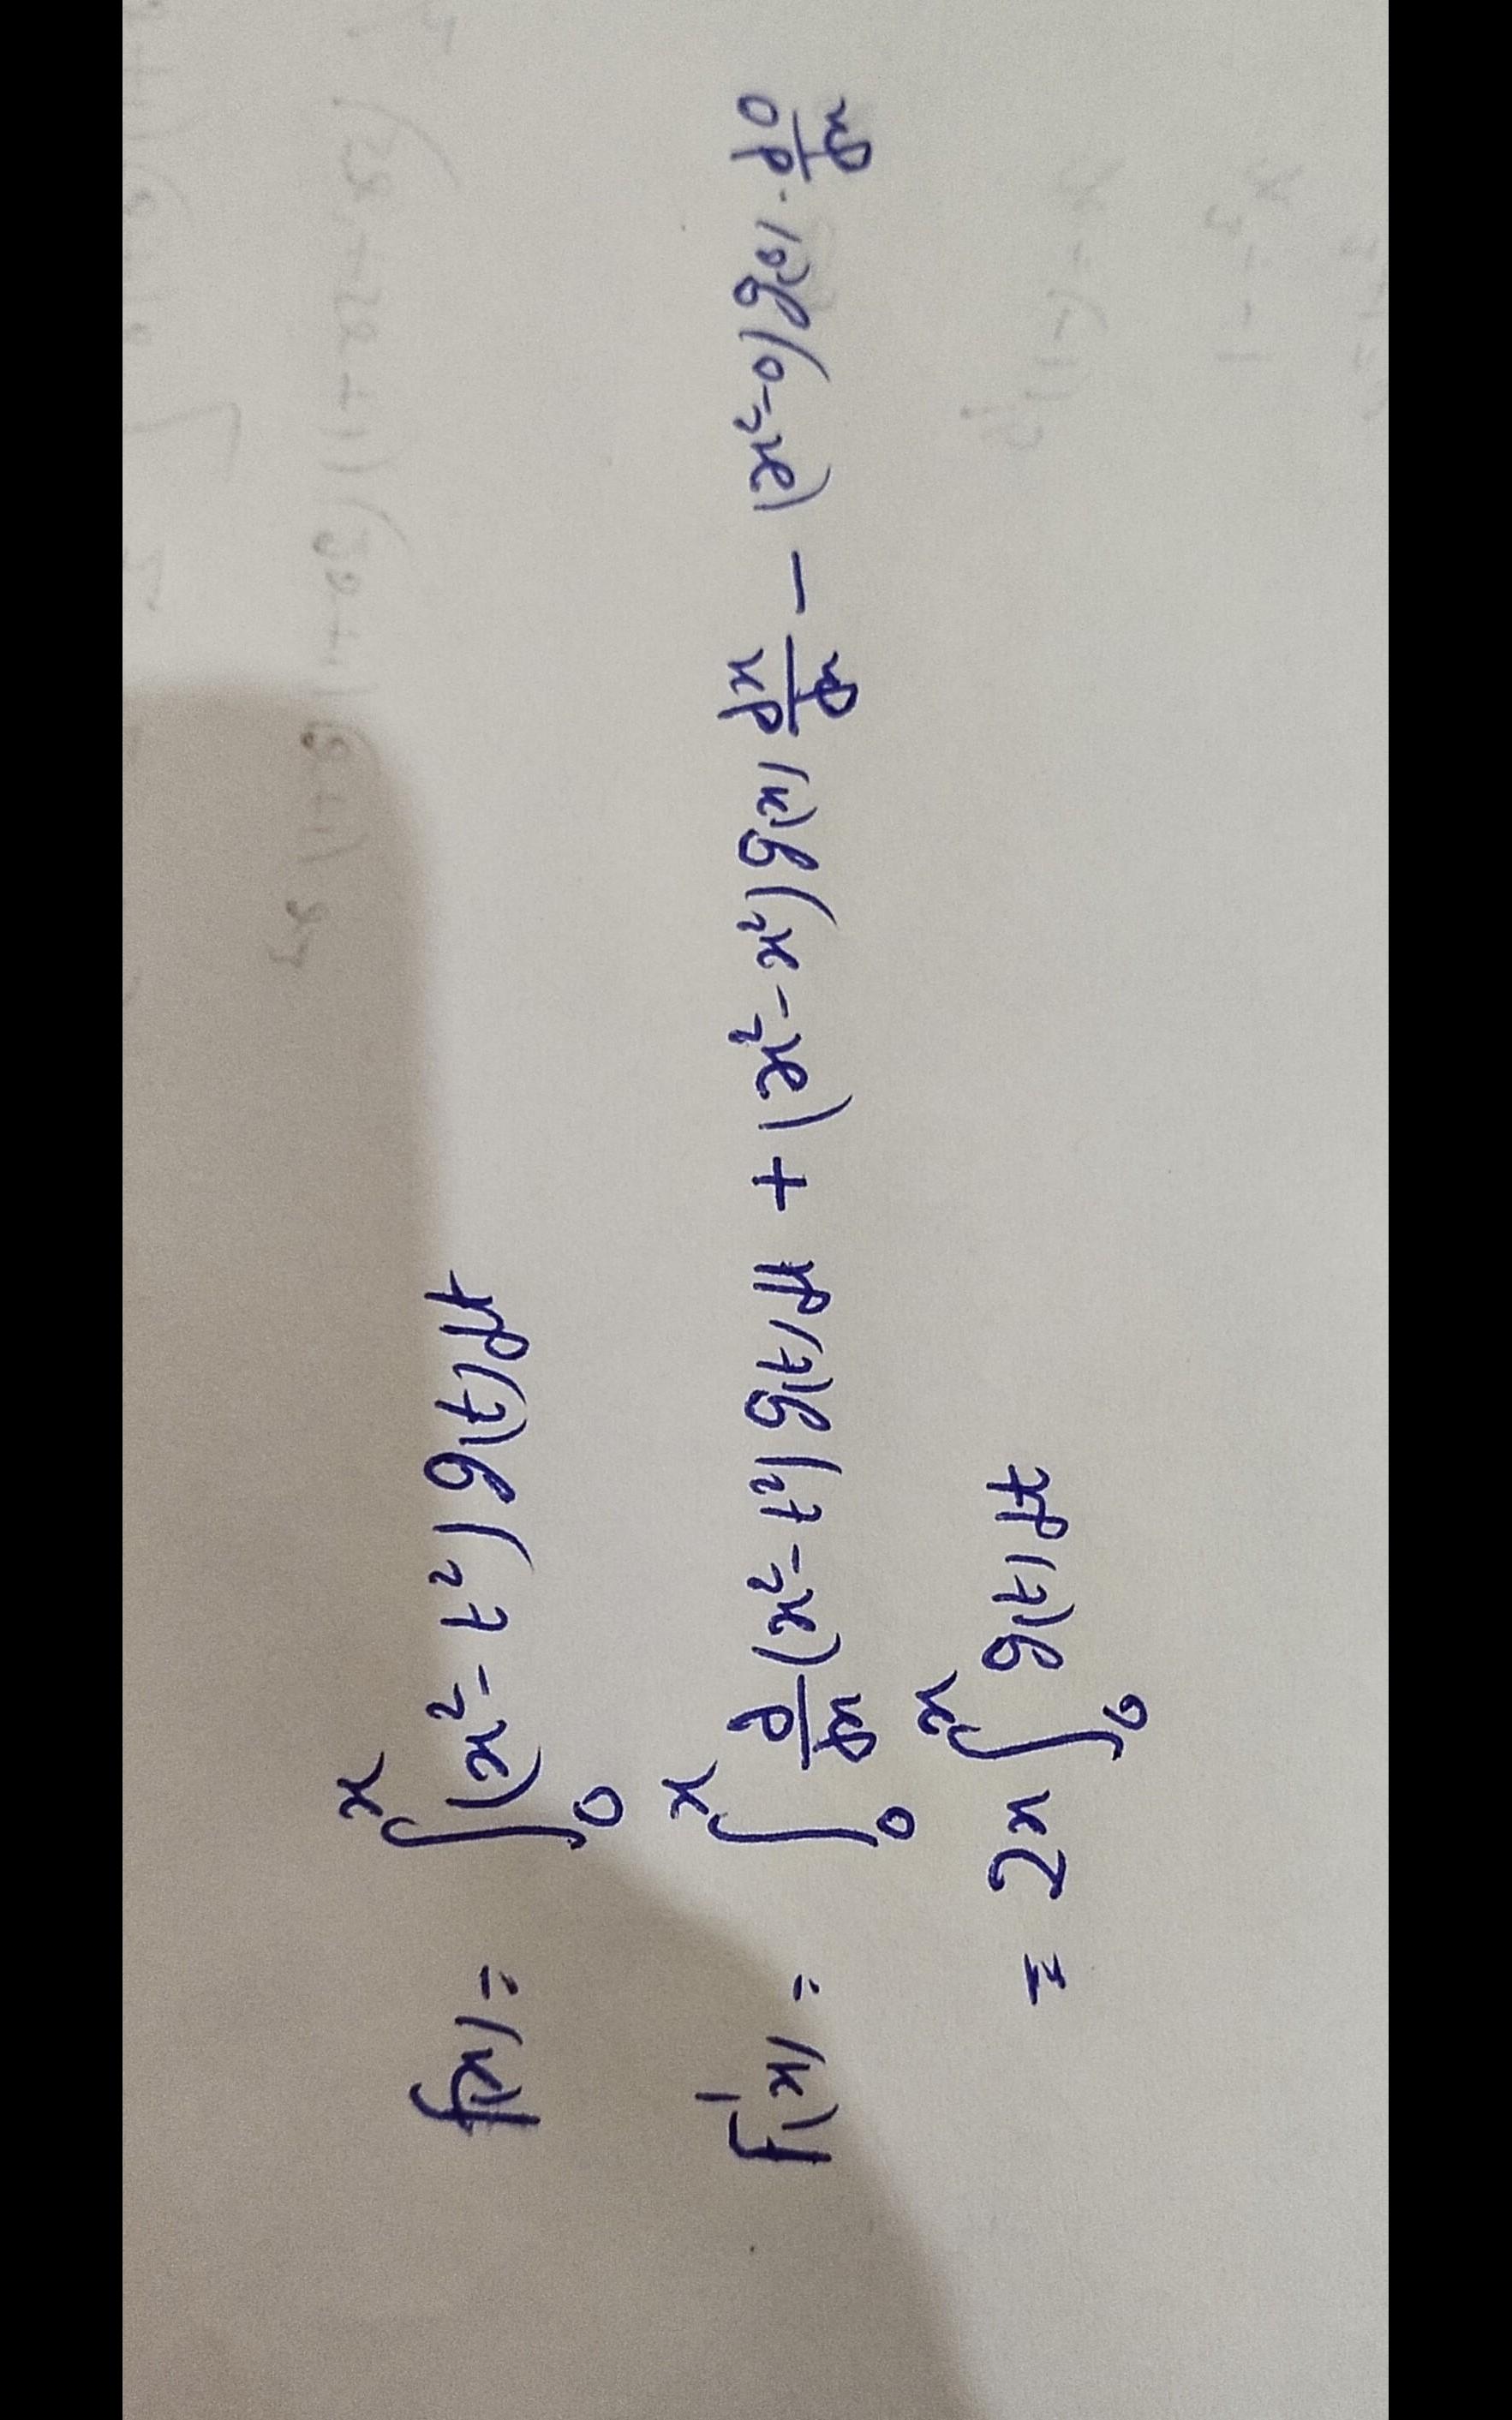 f(x) = ∫₀ˣ (x² - t²) g(t) dt
f'(x) = ∫₀ˣ d/dx (x² - t²) g(t) dt + (x² - x²) g(x) dx/dx - (x² - 0) g(0) · d0/dx
= 2x ∫₀ˣ g(t) dt